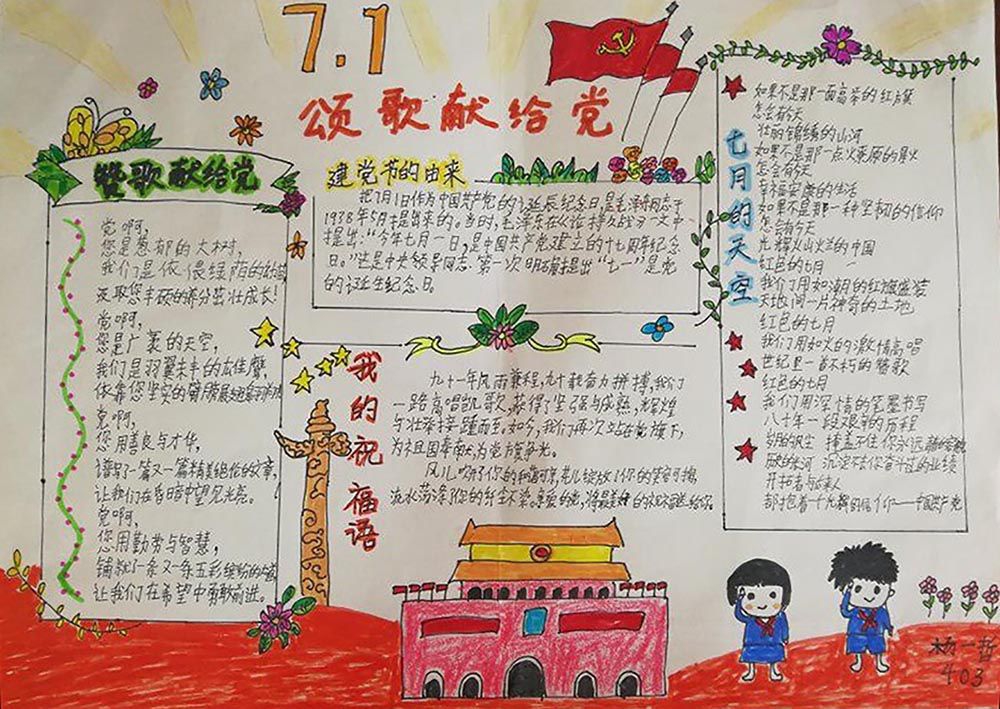 7.1
颂歌献给党
赞歌献给党
党啊,
您是葱郁的大树,
我们是依偎绿荫的
汲取您丰硕的养分茁壮成长!
党啊,
您是广袤的天空,
我们是羽翼未丰的
依靠您坚实的臂膀
党啊,
您用善良与才华,
谱写了一篇又一篇精美绝伦的文章,
让我们在昏暗中望见光亮。
党啊,
您用勤劳与智慧,
铺就了一条又一条五彩缤纷的
让我们在希望中勇敢前进。
建党节的由来
把7月1日作为中国共产党的诞辰纪念日,是毛泽东同志于
1938年5月提出来的。当时,毛泽东在《论持久战》一文中
提出:“今年七月一日,是中国共产党建立的十七周年纪念
日。”这是中央领导同志第一次明确提出“七一”是党
的诞生纪念日。
我的祝福语
九十一年风雨兼程,九十载奋力拼搏,我们
一路高唱凯歌,获得了坚强与成熟,辉煌
与壮举接踵而至。如今,我们再次站在党旗下,
为祖国奉献,为党旗争光。
风儿吹
流水荡涤你的纤尘不染。亲爱的党,将最美好的祝福送给你。
七月的天空
如果不是那一面高举的红旗
怎会有今天
壮丽锦绣的山河
如果不是那一点火燎原的星火
怎会有今天
幸福安康的生活
如果不是那一种坚韧的信仰
怎会有今天
光辉火山火洋的中国
红色的七月
我们用如潮的红旗盛装
天地间一片神奇的土地
红色的七月
我们用如火的激情高唱
世纪里一首不朽的赞歌
红色的七月
我们用深情的笔墨书写
八十年一段艰辛的历程
掩盖不住你永远
沉淀不去你奋斗过的业绩
开拓者与后来人
都抱着十九
中国共产党
杨一哲
403